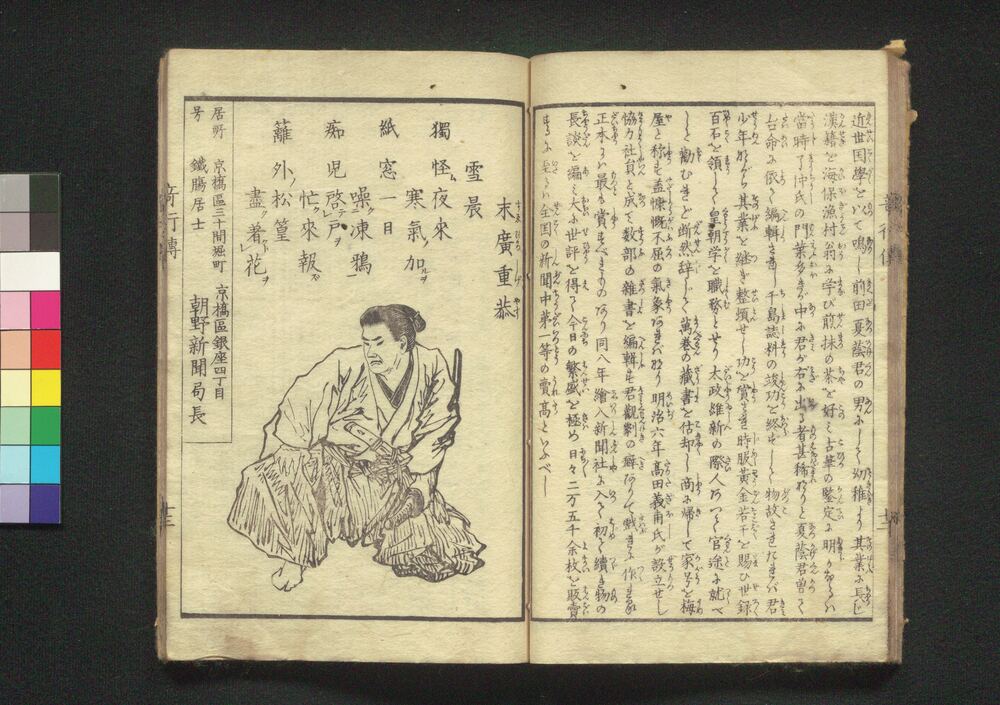 近世国學を以て鳴し前田夏蔭君の男にして幼稚より其業に長じ
漢籍を海保漁村翁に学び煎抹の茶を好み古筆の鑒定に明かなり
當時了仲氏の門葉多きが中に君が右に出る者甚稀なりと夏蔭君曽て
台命に依て編輯させし千島誌料の竣功を終ずして物故されたれバ君
少年ながら其業を継ぎ整頓せし功を賞され時服黄金若干を賜ひ世録
百石を領し皇朝学を職務とせり太政維新の際人みつて官途に就べ
しと勧むれど断然辞して萬巻の蔵書を估却し商に帰して家号を梅
屋と称も益慷慨不屈の氣象あれバなり明治六年髙田義甫氏が設立せし
協力社員と成て数部の雑書を編輯も君観劇の癖ありて戯れに作る
正本うハ最も賞すべきものなり同八年繪入新聞社に入て初て續き物の
長談を編み大に世評を得て今日の繁盛を極め日々二万五千余枚を販賣
するに至る全国の新聞中第一等の賣高といふべし
雪晨
末廣重恭
獨怪夜來寒氣加
紙窓一日噪凍鴉
痴児啓戸忙來報
籬外松篁盡著花
居所 京橋區三十間堀町 京橋區銀座四丁目
号 鐵膓居士 朝野新聞局長
十三